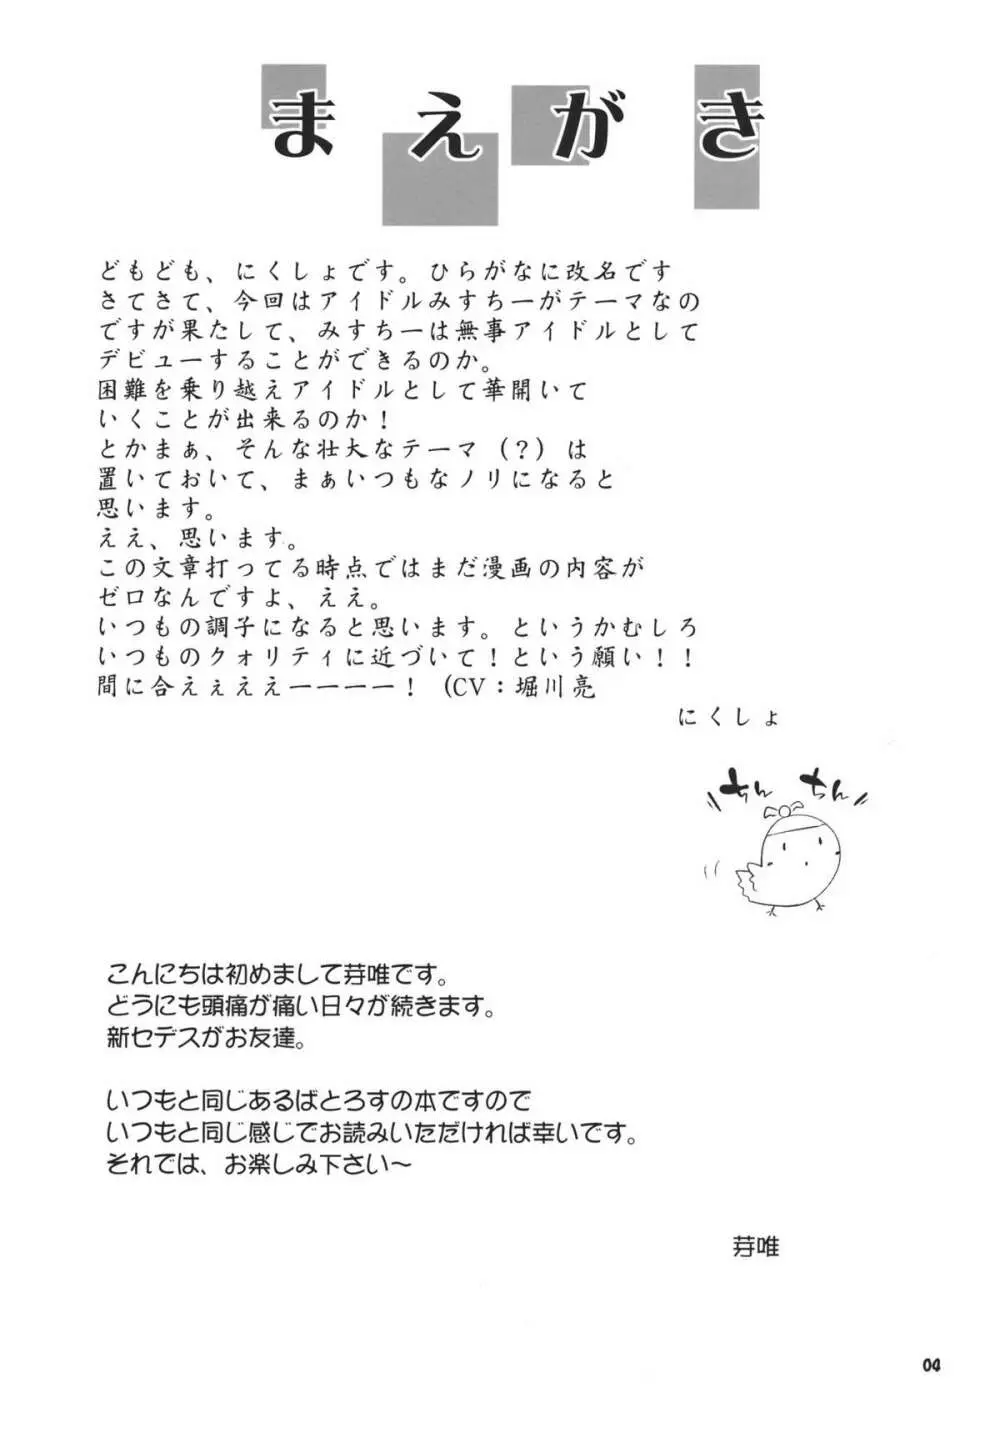 まえがき
どもども、にくしょです。ひらがなに改名です
さてさて、今回はアイドルみすちーがテーマなの
ですが果たして、みすちーは無事アイドルとして
デビューすることができるのか。
困難を乗り越えアイドルとして華開いて
いくことが出来るのか！
とかまぁ、そんな壮大なテーマ（？）は
置いておいて、まぁいつもなノリになると
思います。
ええ、思います。
この文章打ってる時点ではまだ漫画の内容が
ゼロなんですよ、ええ。
いつもの調子になると思います。というかむしろ
いつものクォリティに近づいて！という願い！！
間に合えぇええーーーー！（CV：堀川亮
にくしょ
ちん ちん
こんにちは初めまして莩唯です。
どうにも頭痛が痛い日々が続きます。
新セデスがお友達。
いつもと同じあるばとろすの本ですので
いつもと同じ感じでお読みいただければ幸いです。
それでは、お楽しみ下さい～
莩唯
04